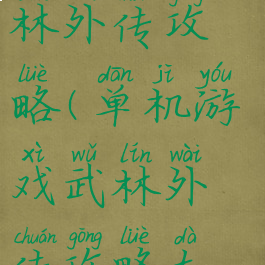 林外传攻
lüè dān jī yóu
略(单机游
xì wǔ lín wài
戏武林外
chuán gōng lüè dà
传攻略大